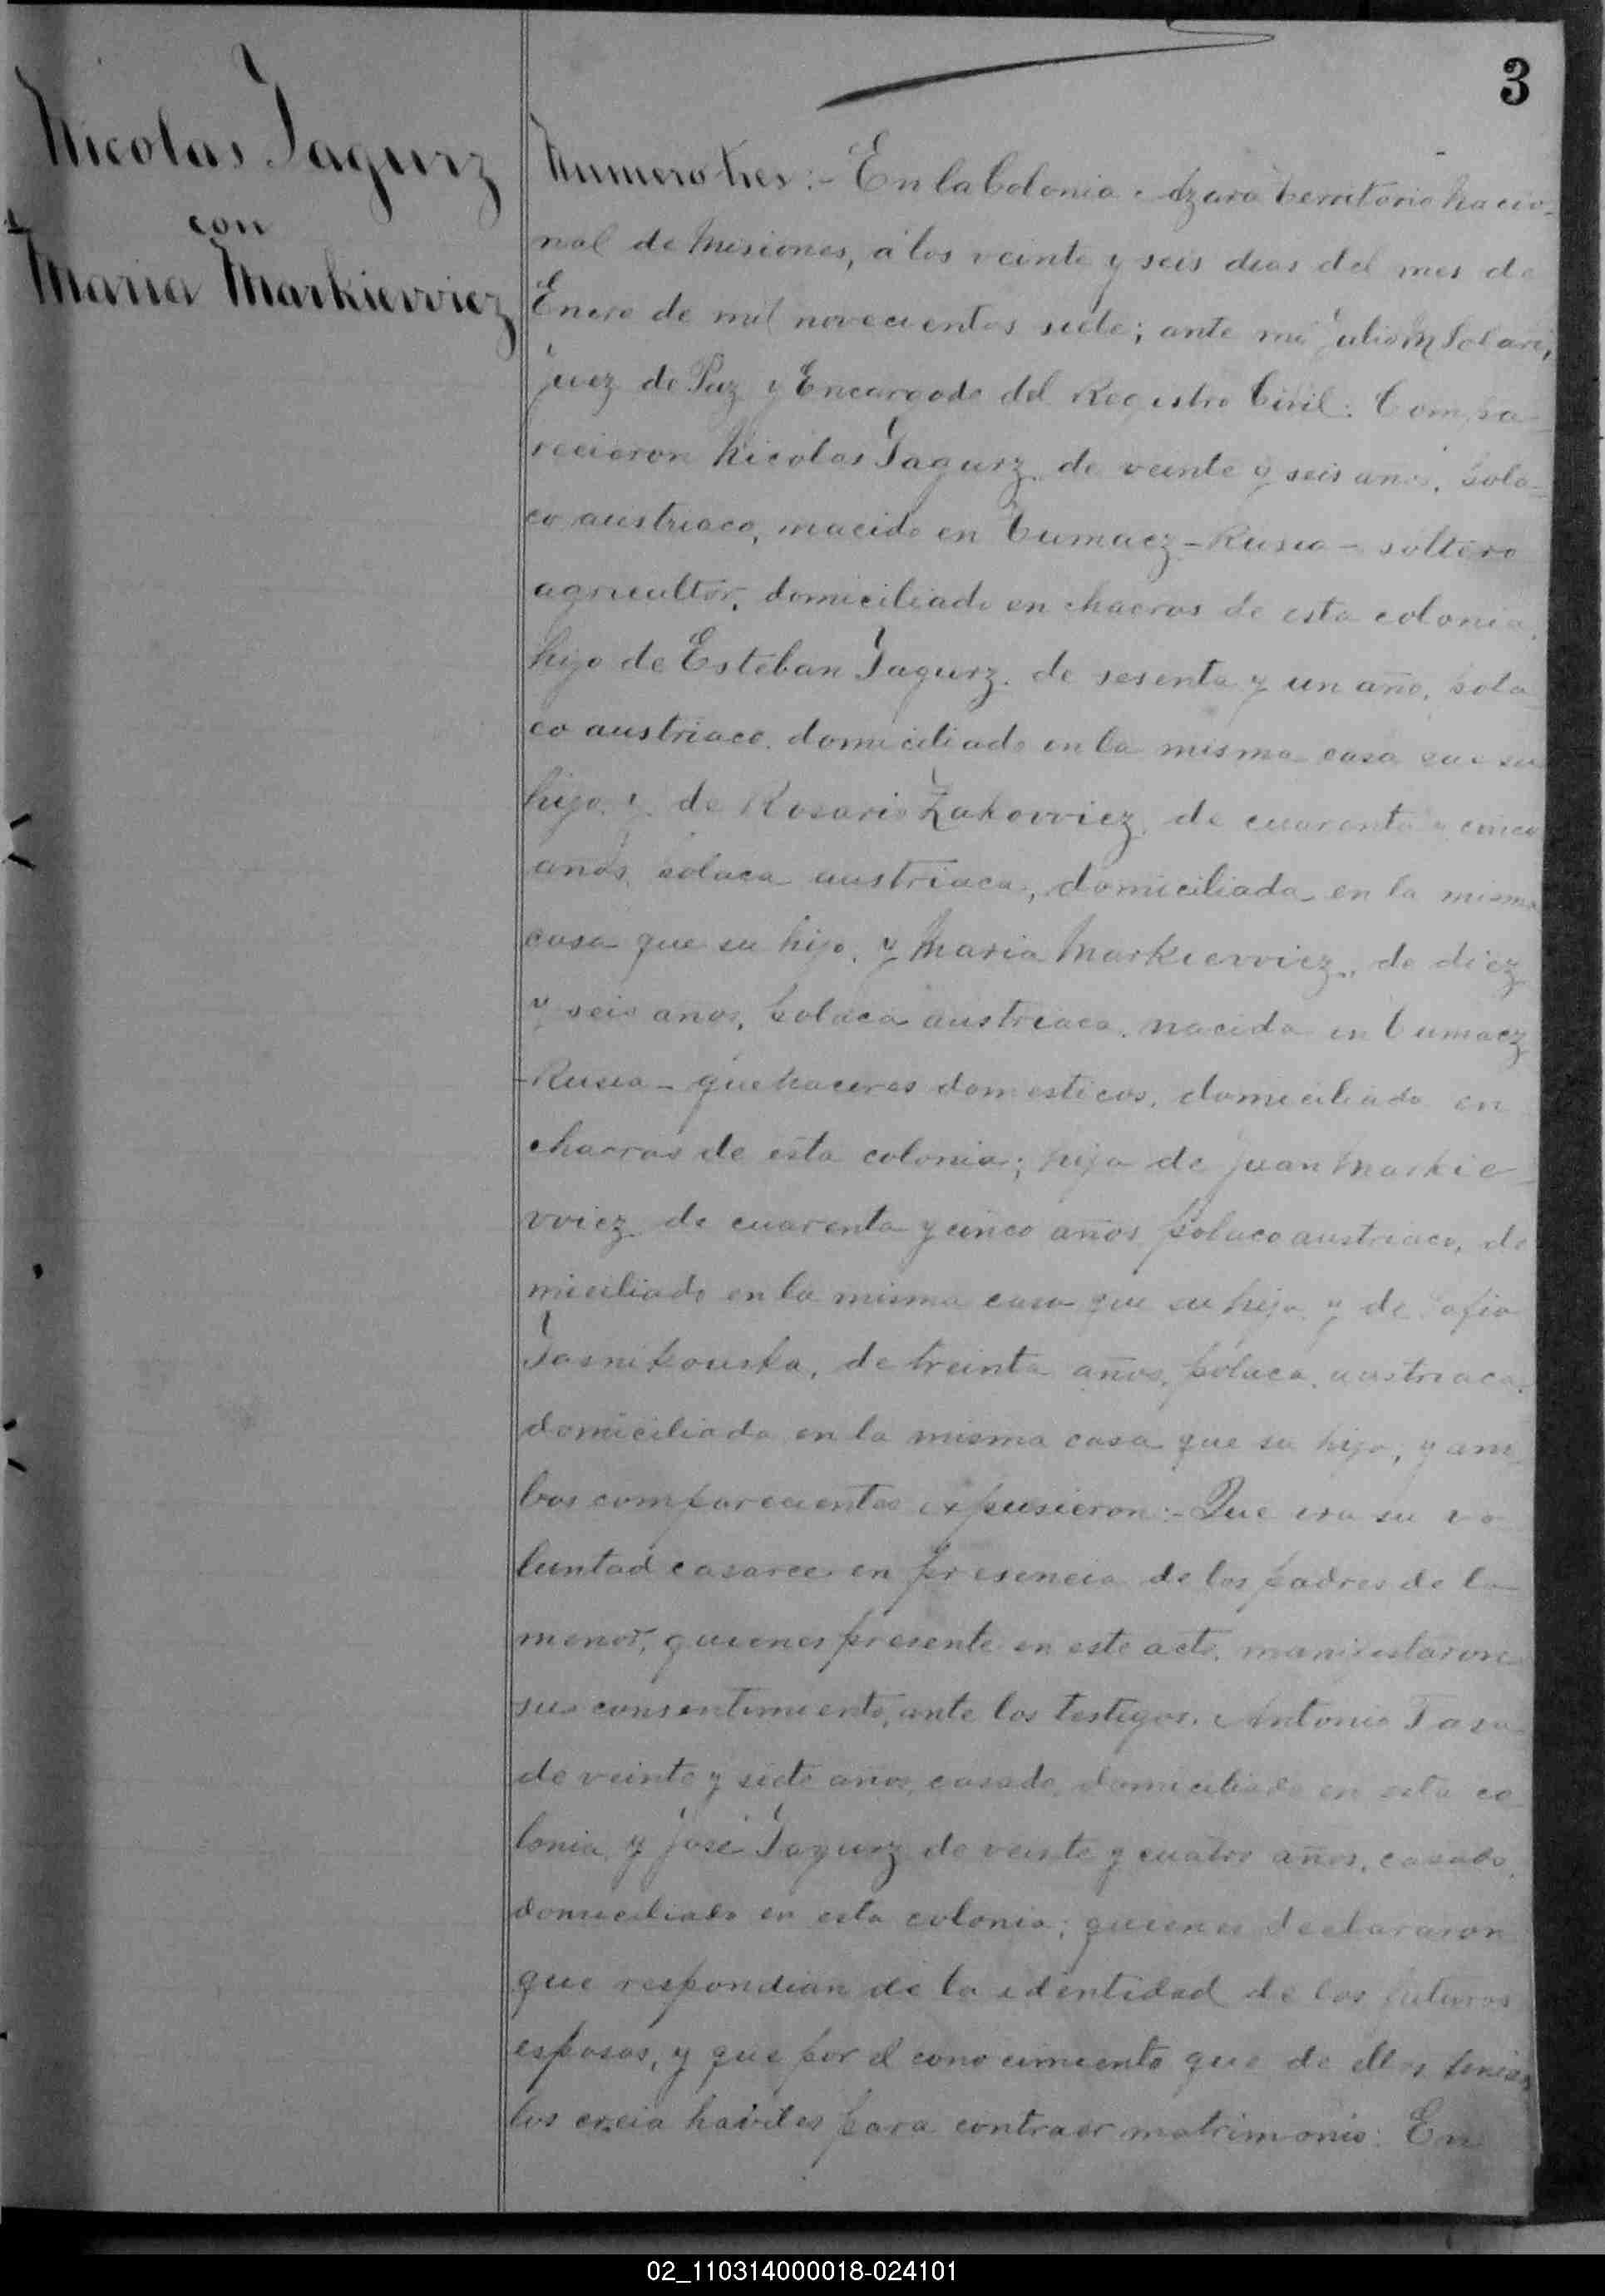 3
Nicolas Jagurz
con
Maria Markievvicz
Numero tres:- En la Colonia Azara territorio nacio-
nal de Misiones, á los veinte y seis dias del mes de
Enero de mil novecientos siete; ante mi Julio M Solari,
Juez de Paz y Encargado del Registro Civil: Compa-
recieron Nicolas Jagurz de veinte y seis años, pola-
co austriaco, nacido en Tumacz - Rusia - soltero
agricultor, domiciliado en chacras de esta colonia,
hijo de Esteban Jagurz. de sesenta y un año, pola
co austriaco. domiciliado en la misma casa que su
hijo. y de Rosario Zakovvicz, de cuarenta y cinco
años, polaca austriaca, domiciliada en la misma
casa que su hijo. y Maria Markievvicz, de diez
y seis años, polaca austriaca. nacida en Tumacz
-Rusia- quehaceres domesticos, domiciliada en
charras de esta colonia; hija de Juan Markie-
vvicz de cuarenta y cinco años polaco austriaco, do
miciliado en la misma casa que su hija y de Sofia
Jasnikouska, de treinta años, polaca, austriaca.
domiciliada en la misma casa que su hija; y am
bos comparecientes expusieron:- Que era su vo
luntad casarce en presencia de los padres de la
menor, quienes presente en este acto, manifestaron
su consentimiento, ante los testigos. Antonio
de veinte y siete años, casado, domiciliado en esta co
lonia, y José Jagurz de veinte y cuatro años, casado,
domiciliado en esta colonia; quienes declararon
que respondian de la identidad de los futuros
esposos, y que por el conocimiento que de ellos tenian
los creia haviles para contraer matrimonio: En
02_110314000018-024101